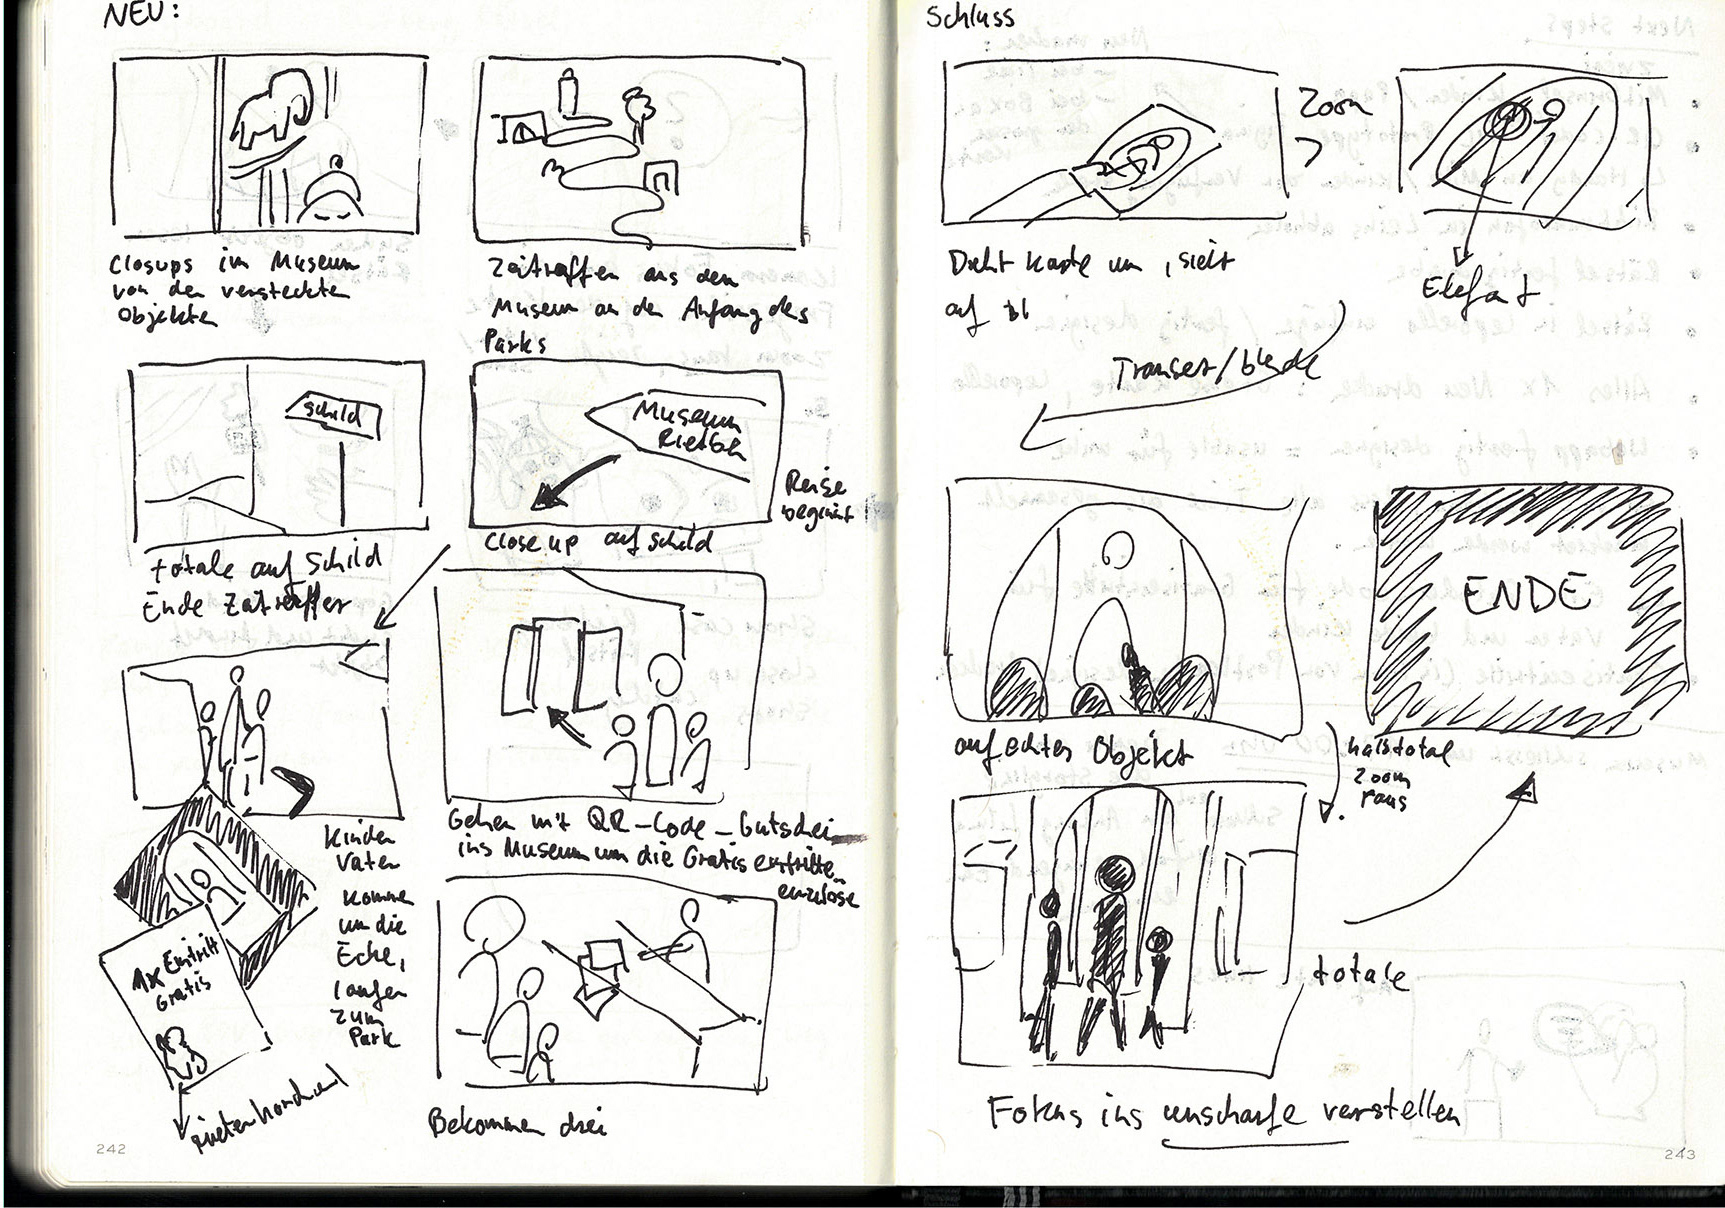 NEU:
Closups im Museum
von den versteckten
Objekten
Zeitraffer aus dem
Museum an den Anfang des
Parks
Schild
totale auf Schild
Ende Zeitraffer
Museum
Rietberg
Reise
beginnt
Close up auf Schild
Kinder
Vater
kommen
um die
Ecke,
laufen
zum
Park
1x Eintritt
Gratis
Gehen mit QR-Code-Gutschein
ins Museum um die Gratiseintritte
einzulösen
Bekommen drei
242
Schluss
Zoom
>
Dreht Karte um, sieht
auf
Elefant
auf echtes Objekt
ENDE
halbtotal
Zoom
raus
totale
Fokus ins unscharfe verstellen
243